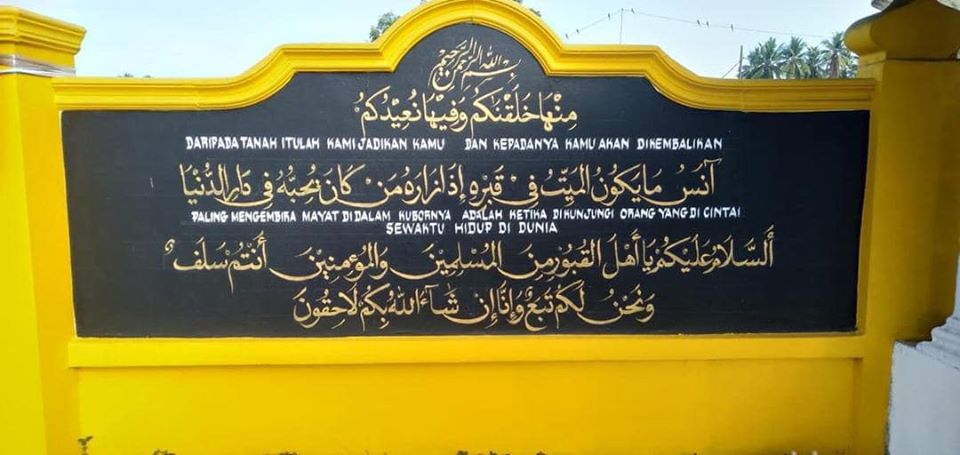 بِسْمِ اللهِ الرَّحْمٰنِ الرَّحِيْمِ
مِنْهَا خَلَقْنَاكُمْ وَفِيْهَا نُعِيْدُكُمْ
DARIPADA TANAH ITULAH KAMI JADIKAN KAMU DAN KEPADANYA KAMU AKAN DIKEMBALIKAN
آنَسُ مَا يَكُوْنُ الْمَيِّتُ فِيْ قَبْرِهِ إِذَا زَارَهُ مَنْ كَانَ يُحِبُّهُ فِي دَارِ الدُّنْيَا
PALING MENGEMBIRA MAYAT DI DALAM KUBORNYA ADALAH KETIKA DIKUNJUNGI ORANG YANG DI CINTAI
SEWAKTU HIDUP DI DUNIA
اَلسَّلَامُ عَلَيْكُمْ يَا أَهْلَ الْقُبُوْرِ مِنَ الْمُسْلِمِيْنَ وَالْمُؤْمِنِيْنَ أَنْتُمْ سَلَفٌ
وَنَحْنُ لَكُمْ تَبَعٌ وَإِنَّا إِنْ شَآءَ اللهُ بِكُمْ لَاحِقُوْنَ